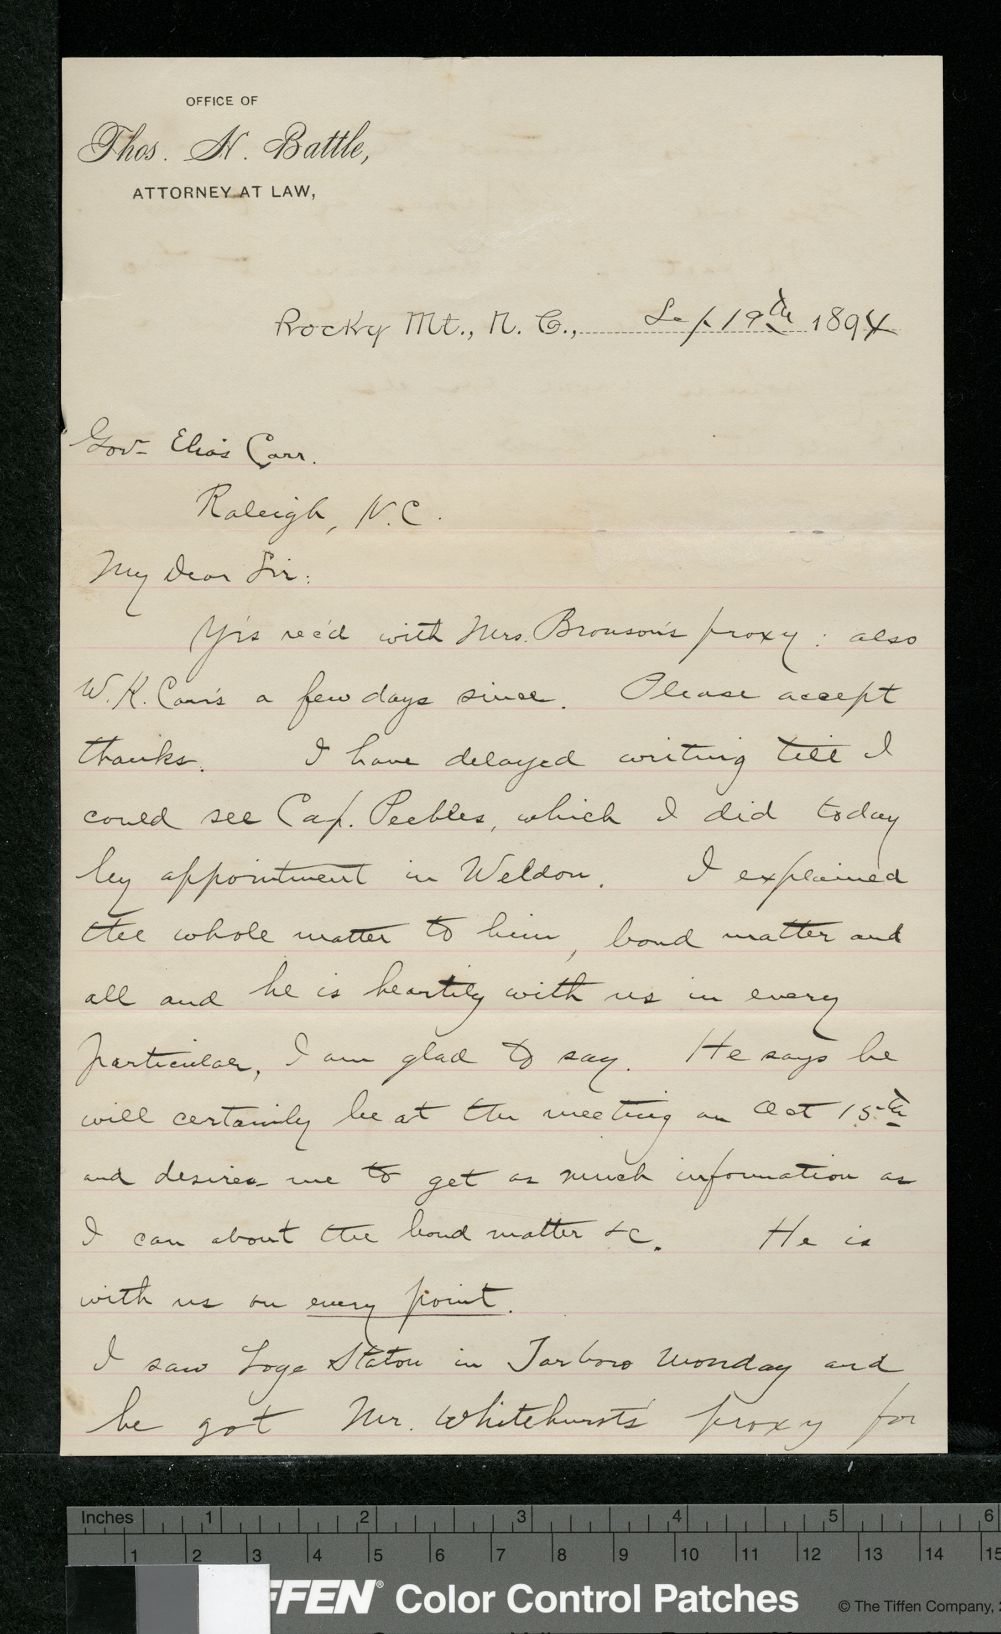 OFFICE OF
Thos. H. Battle,
ATTORNEY AT LAW,
Rocky Mt., N. C., Sep 19th 1894
Gov- Elias Carr.
Raleigh, N.C.
My Dear Sir:
Yrs rec'd with Mrs. Bronson's proxy: also
W. K. Carr's a few days since. Please accept
thanks. I have delayed writing till I
could see Cap. Peebles, which I did today
by appointment in Weldon. I explained
the whole matter to him, bond matter and
all and he is heartily with us in every
particular, I am glad to say. He says he
will certainly be at the meeting on Oct 15th
and desires me to get as much information as
I can about the bond matter &c. He is
with us on every point.
I saw Loge Staton in Tarboro Monday and
he got Mr. Whitehurst's proxy for
Inches 1 2 3 4 5 6
1 2 3 4 5 6 7 8 9 10 11 12 13 14 15
FFEN® Color Control Patches © The Tiffen Company, 2